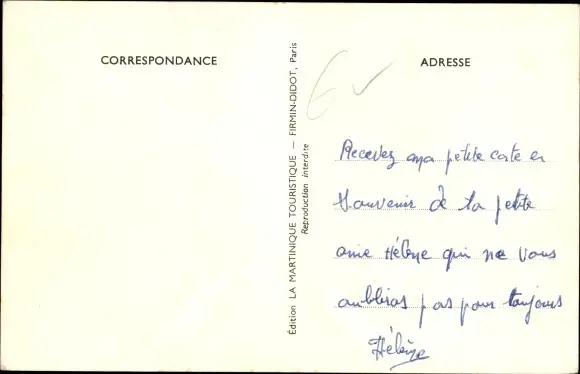 CORRESPONDANCE
ADRESSE
Édition LA MARTINIQUE TOURISTIQUE — FIRMIN-DIDOT, Paris
Reproduction interdite
Recevez ma petite carte en
Souvenir de la petite
amie Hélène qui ne vous
oublieras pas pour toujours
Hélène